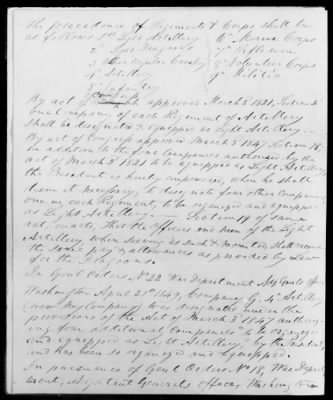 The precedence of Regiments & Corps shall be
as follows 1st Light Artillery 6th Marine Corps
2d Light Dragoons 7th Riflemen
3d Other Regular Cavalry 8th Volunteer Corps
4th Artillery 9th Militia
5th Infantry
By act of Congress approved March 2d 1821, Section 2
one Company of each Regiment of Artillery
shall be designated & equipped as Light Artillery
By act of Congress approved March 3d 1847 Section 18,
in addition to the four Companies authorized by the
act of March 2d 1821 to be equipped as Light Artillery
the President is hereby empowered, when he shall
deem it necessary, to designate four other Companies,
one in each Regiment, to be organized and equipped
as Light Artillery. Section 19 of same
act, enacts, That the Officers and men of the Light
Artillery, when serving as such & mounted shall receive
the same pay & allowances as provided by law
for the Dragoons.
In Genl Orders No 22 War Department Adjt Genls Office
Washington April 21st 1849, Company G, 4th Artillery
(now my Company) was designated under the
provisions of the Act of March 3d 1847 authoriz-
ing four additional Companies "to be organized
and equipped as Light Artillery," by the President,
and has been so organized and equipped.
In pursuance of Genl Orders No 18, War Depart
ment, Adjutant Generals office, Washington